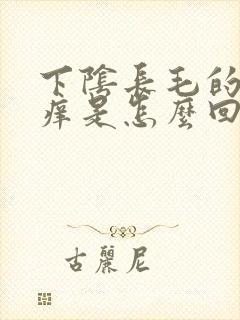 下陰長毛的
痒是怎麼回
古麗尼